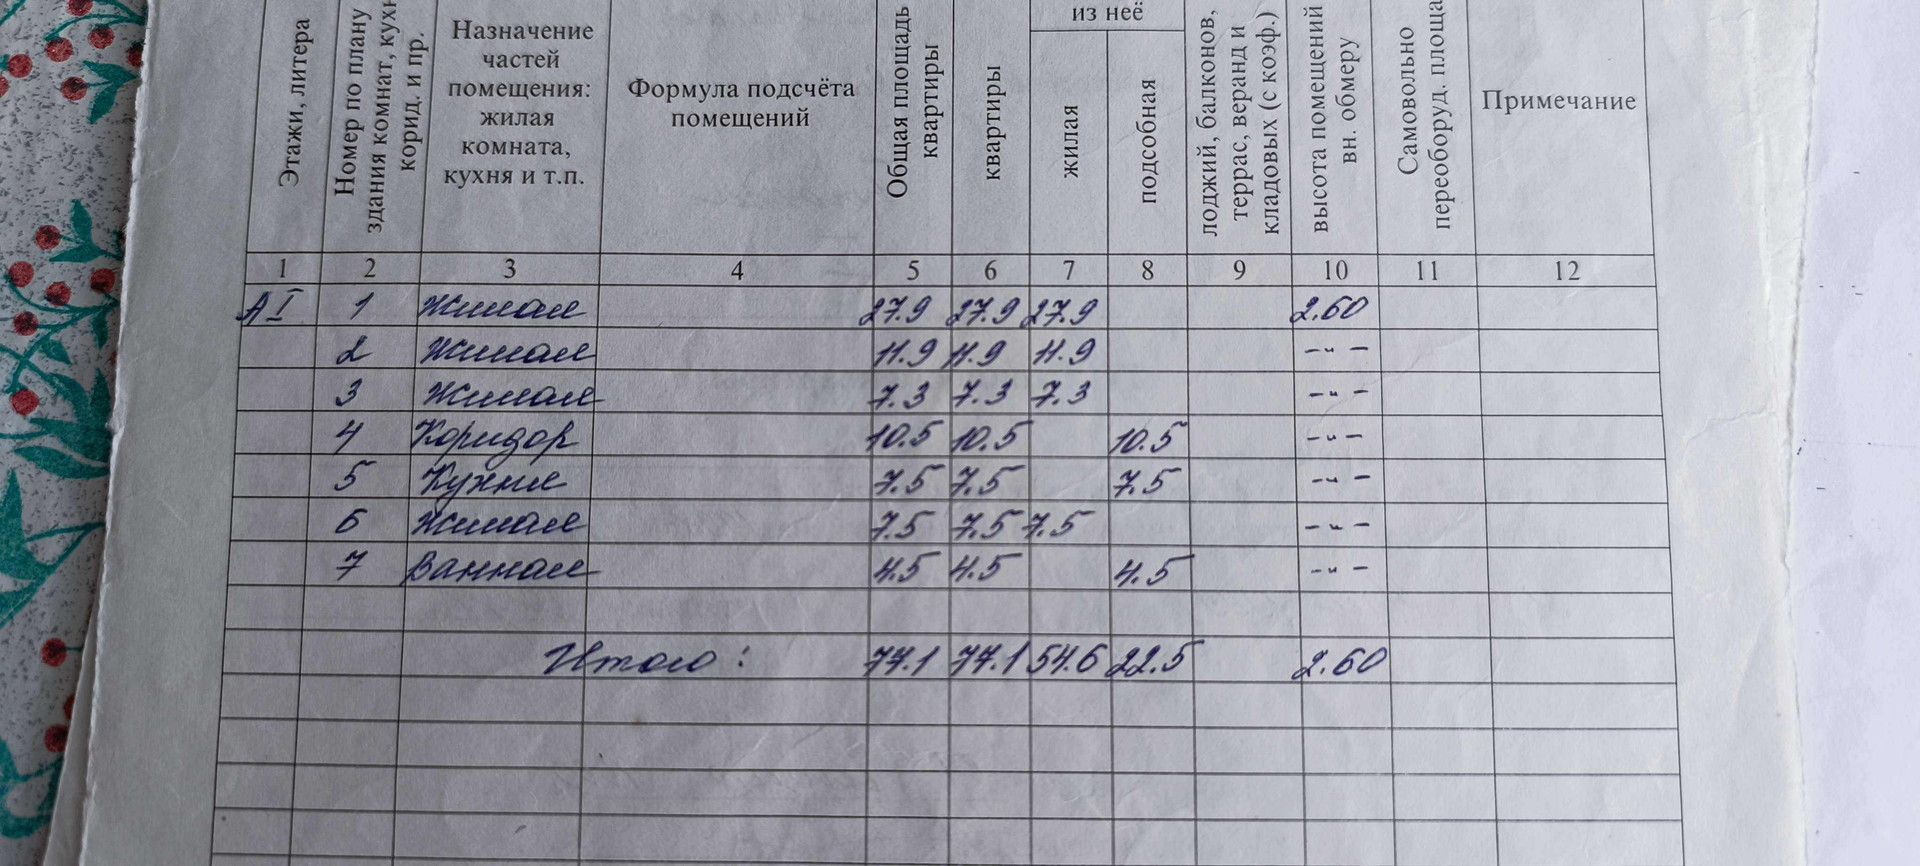 Этажи, литера
Номер по плану
здания комнат, кухн
корид. и пр.
Назначение
частей
помещения:
жилая
комната,
кухня и т.п.
Формула подсчёта
помещений
Общая площадь
квартиры
квартиры
из неё
жилая
подсобная
лоджий, балконов,
террас, веранд и
кладовых (с коэф.)
высота помещений
вн. обмеру
Самовольно
переоборуд. площа
Примечание
1 2 3 4 5 6 7 8 9 10 11 12
АI 1 Жилая 27.9 27.9 27.9 2.60
2 Жилая 11.9 11.9 11.9 -"-
3 Жилая 7.3 7.3 7.3 -"-
4 Коридор 10.5 10.5 10.5 -"-
5 Кухня 7.5 7.5 7.5 -"-
6 Жилая 7.5 7.5 7.5 -"-
7 Ванная 4.5 4.5 4.5 -"-
Итого: 77.1 77.1 54.6 22.5 2.60